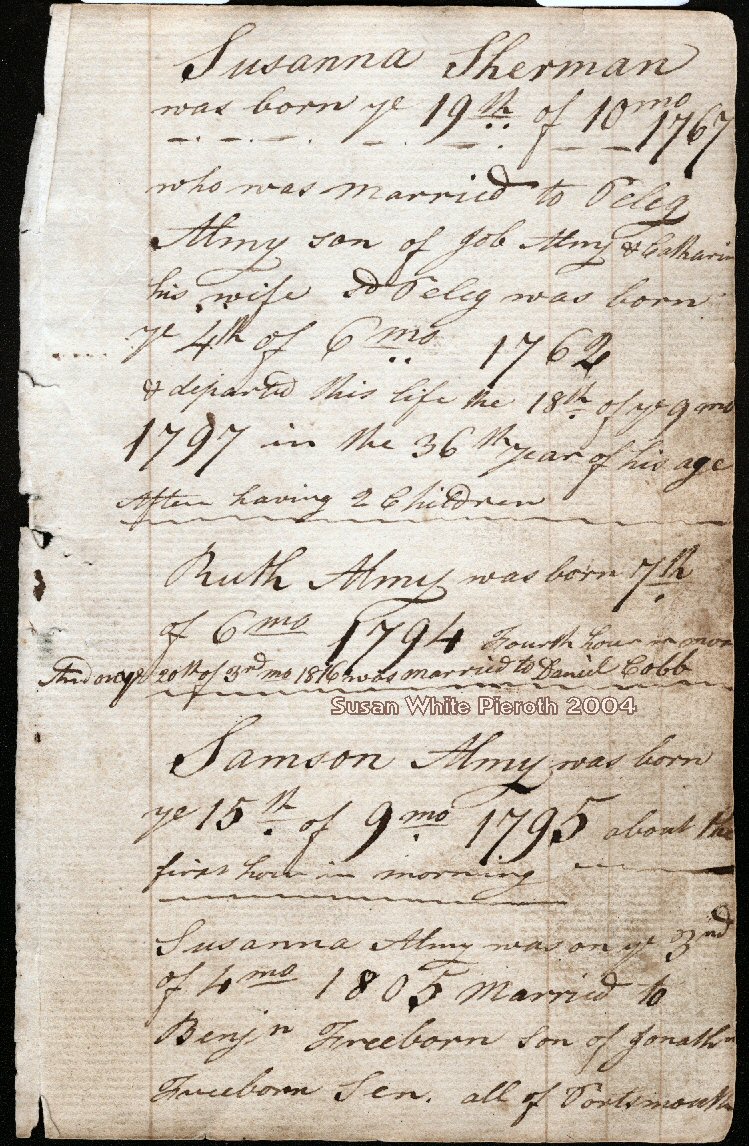 Susanna Sherman
was born ye 19th of 10mo 1767
who was married to Peleg
Almy son of Job Almy & Catharin
his wife sd Peleg was born
ye 4th of 6mo 1762
& departed this life the 18th of ye 9mo
1797 in the 36th year of his age
After having 2 Children
Ruth Almy was born 7th
of 6mo 1794 Fourth hour in mor
And on ye 20th of 3rd mo 1816 was married to Daniel Cobb
Susan White Pieroth 2004
Samson Almy was born
ye 15th of 9mo 1795 about the
first hour in morning
Susanna Almy was on ye 3nd
of 4mo 1805 Married to
Benjn Freeborn son of Jonathn
Freeborn Sen. all of Portsmouth